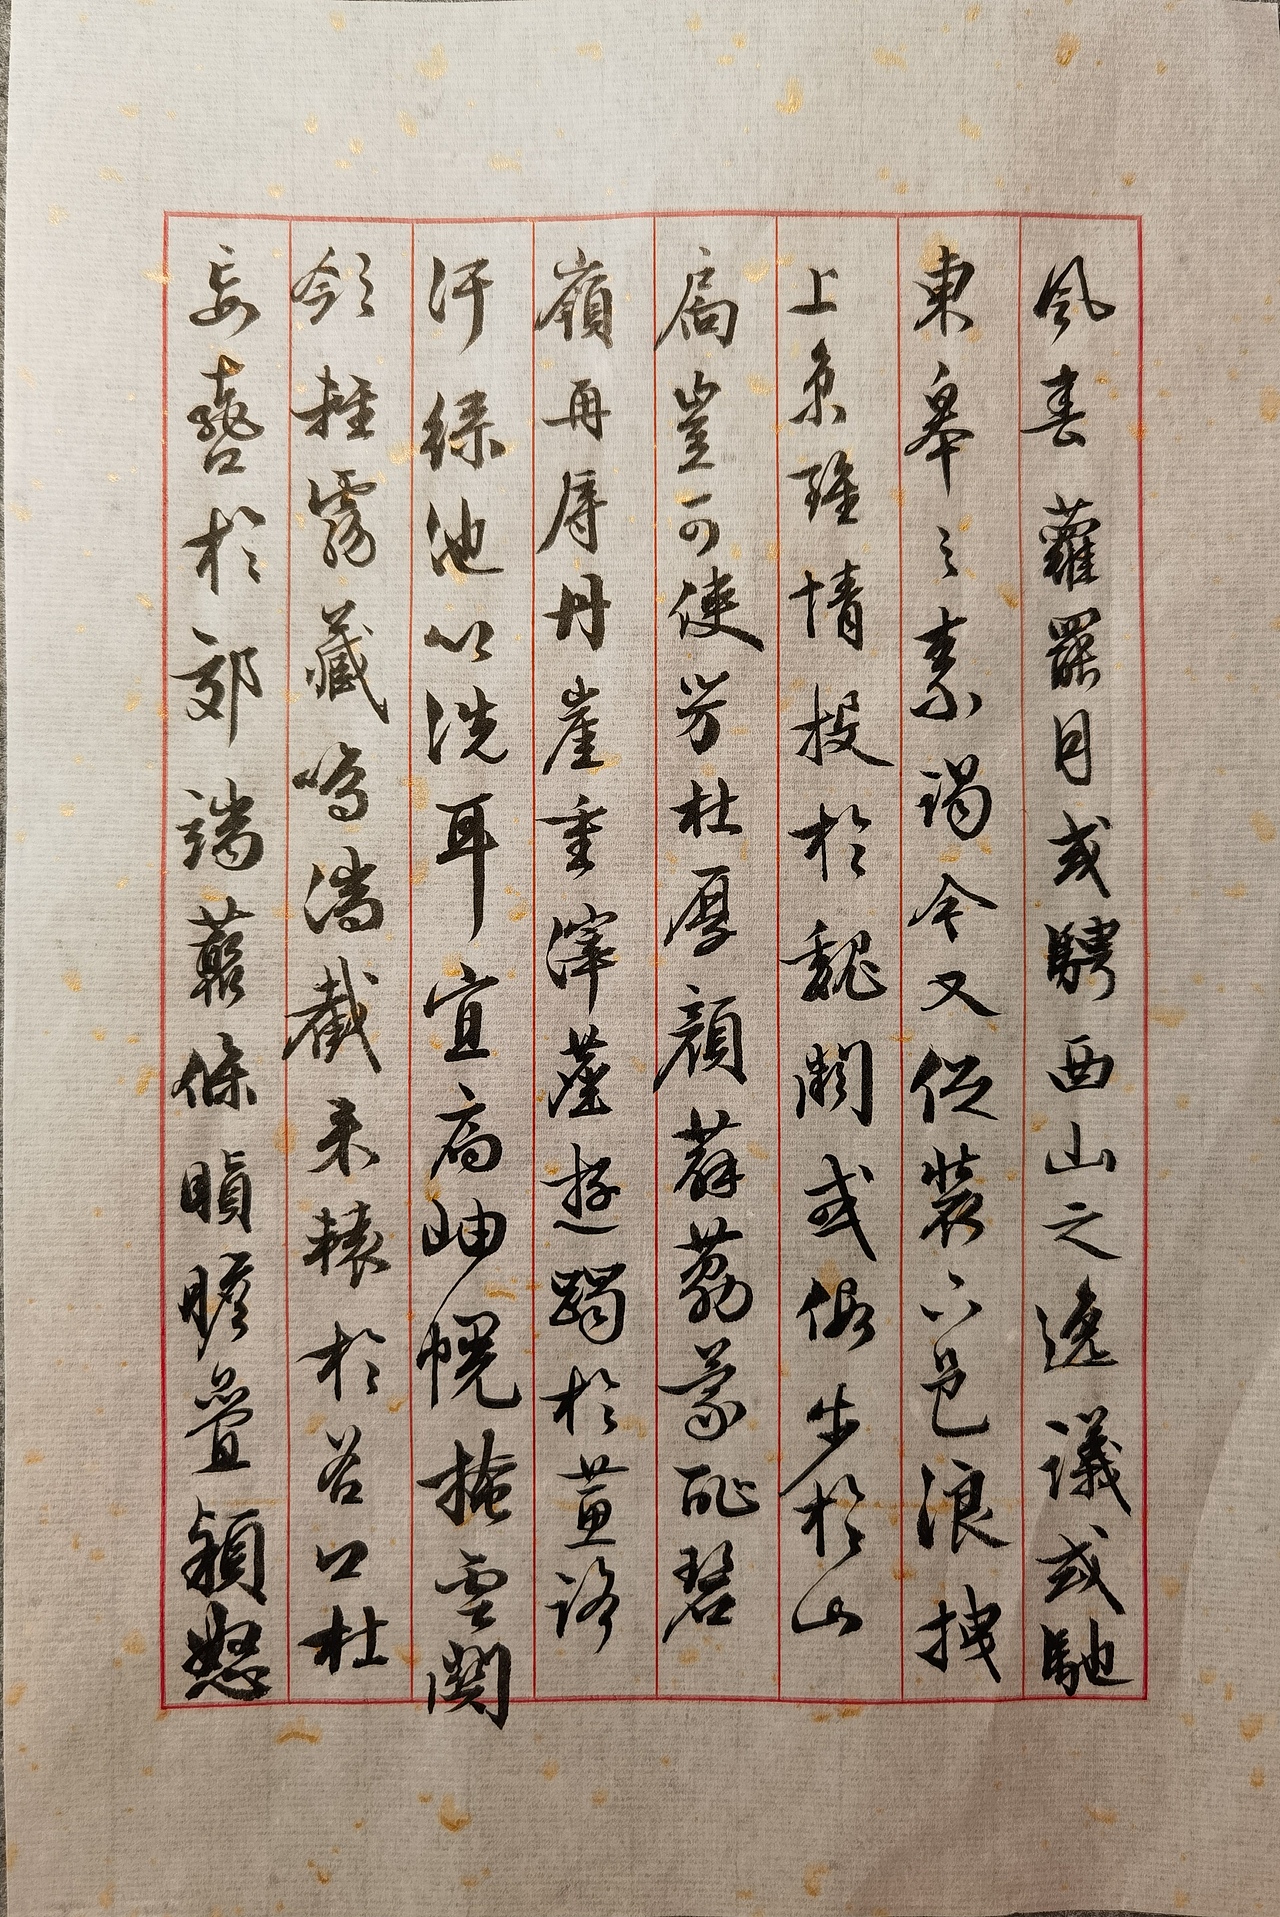 風春蘿罷月或騁西山之逸議或馳
東皋之素謁今又促裝下邑浪拽
上京雖情投於魏闕或假步於山
扃豈可使芳杜厚顏薜荔蒙恥碧
嶺再辱丹崖重滓塵遊躅於蕙路
汙淥池以洗耳宜扃岫幌掩雲關
斂輕霧藏鳴湍截來轅於谷口杜
妄轡於郊端叢條瞋膽疊穎怒